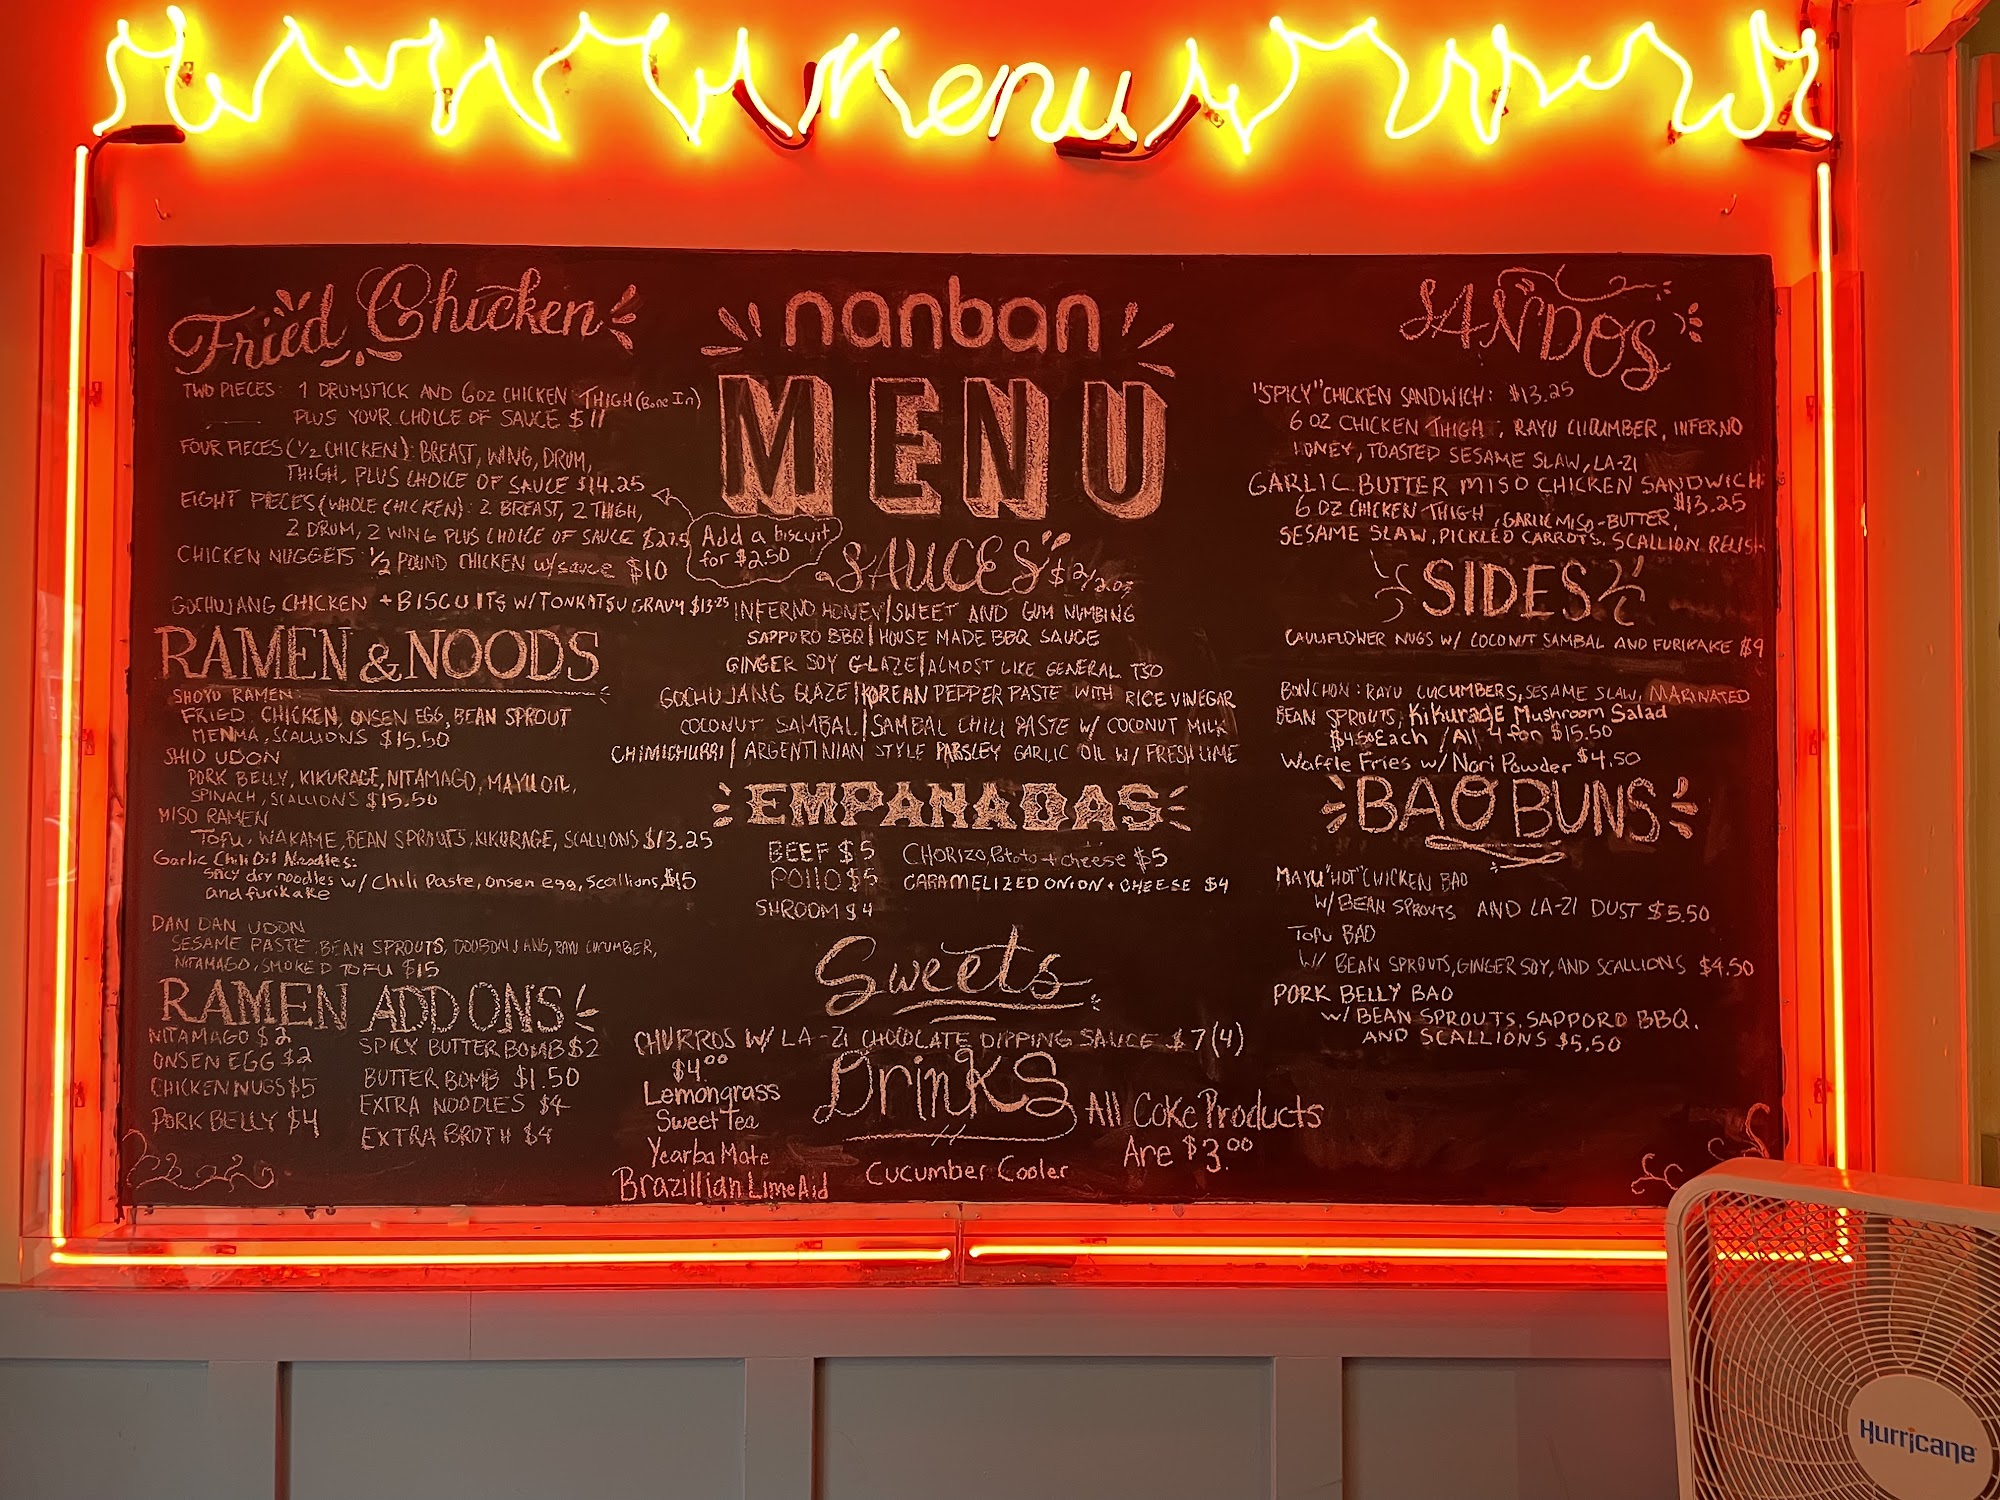 Menu
Fried Chicken
TWO PIECES: 1 DRUMSTICK AND 6oz CHICKEN THIGH (Bone In)
PLUS YOUR CHOICE OF SAUCE $11
FOUR PIECES (1/2 CHICKEN): BREAST, WING, DRUM,
THIGH, PLUS CHOICE OF SAUCE $14.25
EIGHT PIECES (WHOLE CHICKEN): 2 BREAST, 2 THIGH,
2 DRUM, 2 WING PLUS CHOICE OF SAUCE $27.5
Add a biscuit
for $2.50
CHICKEN NUGGETS: 1/2 POUND CHICKEN w/sauce $10
GOCHUJANG CHICKEN + BISCUITS W/TONKATSU GRAVY $13.25
RAMEN & NOODS
SHOYU RAMEN:
FRIED CHICKEN, ONSEN EGG, BEAN SPROUT
MENMA, SCALLIONS $15.50
SHIO UDON
PORK BELLY, KIKURAGE, NITAMAGO, MAYU OIL,
SPINACH, SCALLIONS $15.50
MISO RAMEN
TOFU, WAKAME, BEAN SPROUTS, KIKURAGE, SCALLIONS $13.25
Garlic Chili Oil Noodles:
Spicy dry noodles w/ Chili Paste, onsen egg, Scallions, $15
and furikake
DAN DAN UDON
SESAME PASTE, BEAN SPROUTS, DOOBONJANG, RAYU CUCUMBER,
NITAMAGO, SMOKED TOFU $15
RAMEN ADD ONS
NITAMAGO $2
ONSEN EGG $2
CHICKEN NUGS $5
PORK BELLY $4
SPICY BUTTER BOMB $2
BUTTER BOMB $1.50
EXTRA NOODLES $4
EXTRA BROTH $4
nanban
MENU
SAUCES $2/2oz
INFERNO HONEY|SWEET AND GUM NUMBING
SAPPORO BBQ|HOUSE MADE BBQ SAUCE
GINGER SOY GLAZE|ALMOST LIKE GENERAL TSO
GOCHUJANG GLAZE|KOREAN PEPPER PASTE WITH RICE VINEGAR
COCONUT SAMBAL|SAMBAL CHILI PASTE W/ COCONUT MILK
CHIMICHURRI|ARGENTINIAN STYLE PARSLEY GARLIC OIL W/ FRESH LIME
EMPANADAS
BEEF $5
POLLO $5
SHROOM $4
CHORIZO, Potato + cheese $5
CARAMELIZED ONION + CHEESE $4
Sweets
CHURROS W/ LA-ZI CHOCOLATE DIPPING SAUCE $7(4)
Drinks
$4.00
Lemongrass
Sweet Tea
Yearba Mate
Brazillian LimeAid
Cucumber Cooler
All Coke Products
Are $3.00
SANDOS
"SPICY" CHICKEN SANDWICH: $13.25
6 OZ CHICKEN THIGH, RAYU CUCUMBER, INFERNO
HONEY, TOASTED SESAME SLAW, LA-ZI
GARLIC BUTTER MISO CHICKEN SANDWICH:
$13.25
6 OZ CHICKEN THIGH, GARLIC MISO-BUTTER,
SESAME SLAW, PICKLED CARROTS, SCALLION RELISH
SIDES
CAULIFLOWER NUGS W/ COCONUT SAMBAL AND FURIKAKE $9
BONCHON: RAYU CUCUMBERS, SESAME SLAW, MARINATED
BEAN SPROUTS, Kikurage Mushroom Salad
$4.50 Each / All 4 for $15.50
Waffle Fries w/ Nori Powder $4.50
BAO BUNS
MAYU "HOT" CHICKEN BAO
W/ BEAN SPROUTS AND LA-ZI DUST $5.50
TOFU BAO
W/ BEAN SPROUTS, GINGER SOY, AND SCALLIONS $4.50
PORK BELLY BAO
W/ BEAN SPROUTS, SAPPORO BBQ,
AND SCALLIONS $5.50
Hurricane